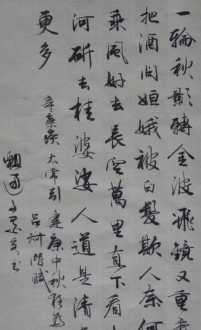 一輪秋影轉金波飛鏡又重
把酒問姮娥被白髮欺人奈何
乘風好去長空萬里直下看
河斫去桂婆娑人道是清
更多
辛棄疾太常引建康中秋夜為
呂叔潛賦